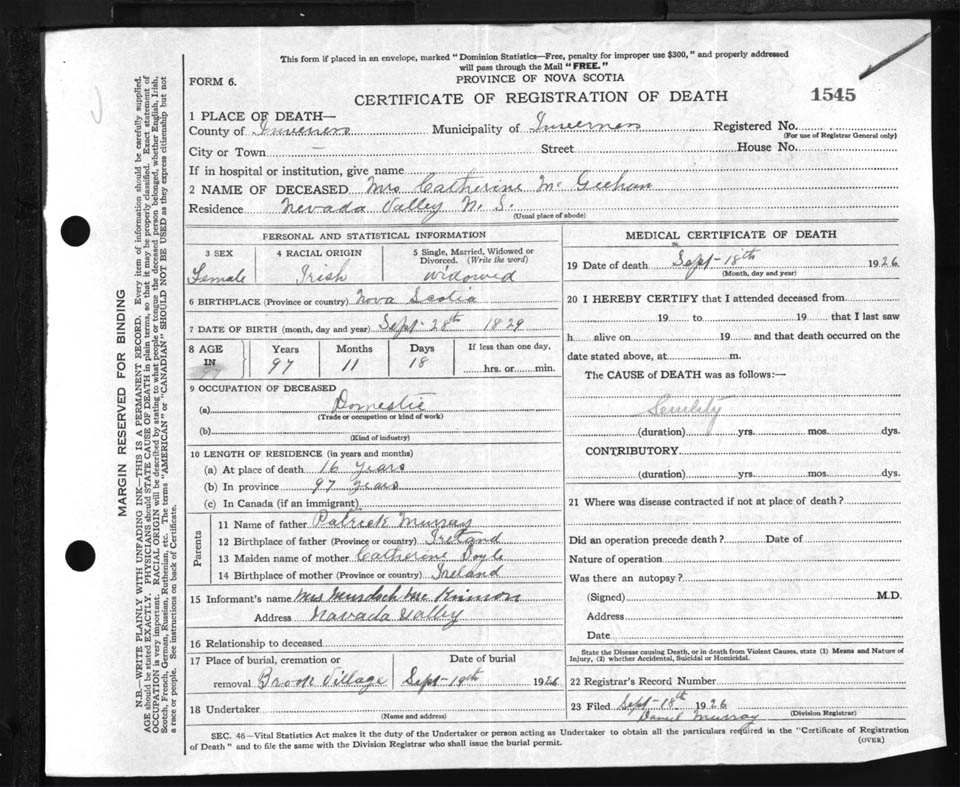 This form if placed in an envelope, marked "Dominion Statistics—Free, penalty for improper use $300," and properly addressed
will pass through the Mail "FREE."
FORM 6.
PROVINCE OF NOVA SCOTIA
CERTIFICATE OF REGISTRATION OF DEATH
1545
1 PLACE OF DEATH—
County of Inverness Municipality of Inverness Registered No.
(For use of Registrar General only)
City or Town — Street House No.
If in hospital or institution, give name
2 NAME OF DECEASED Mrs Catherine Mc Geehan
Residence Nevada Valley N. S.
(Usual place of abode)
PERSONAL AND STATISTICAL INFORMATION
3 SEX 4 RACIAL ORIGIN 5 Single, Married, Widowed or
Divorced. (Write the word)
Female Irish widowed
6 BIRTHPLACE (Province or country) Nova Scotia
7 DATE OF BIRTH (month, day and year) Sept 28th 1829
8 AGE Years Months Days If less than one day,
IN 97 11 18 hrs. or min.
9 OCCUPATION OF DECEASED
(a) Domestic
(Trade or occupation or kind of work)
(b)
(Kind of industry)
10 LENGTH OF RESIDENCE (in years and months)
(a) At place of death 16 years
(b) In province 97 years
(c) In Canada (if an immigrant)
Parents
11 Name of father Patrick Murray
12 Birthplace of father (Province or country) Ireland
13 Maiden name of mother Catherine Doyle
14 Birthplace of mother (Province or country) Ireland
15 Informant's name Mrs Murdoch Mc Kinnon
Address Navada Valley
16 Relationship to deceased
17 Place of burial, cremation or Date of burial
removal Brook Village Sept 19th 1926
18 Undertaker
(Name and address)
MEDICAL CERTIFICATE OF DEATH
19 Date of death Sept 18th 1926
(Month, day and year)
20 I HEREBY CERTIFY that I attended deceased from
19 to 19 that I last saw
h alive on 19 and that death occurred on the
date stated above, at m.
The CAUSE of DEATH was as follows:—
Senility
(duration) yrs. mos. dys.
CONTRIBUTORY
(duration) yrs. mos. dys.
21 Where was disease contracted if not at place of death?
Did an operation precede death? Date of
Nature of operation
Was there an autopsy?
(Signed) M.D.
Address
Date
State the Disease causing Death, or in death from Violent Causes, state (1) Means and Nature of
Injury, (2) whether Accidental, Suicidal or Homicidal.
22 Registrar's Record Number
23 Filed Sept 18th 1926
Daniel Murray
(Division Registrar)
SEC. 46—Vital Statistics Act makes it the duty of the Undertaker or person acting as Undertaker to obtain all the particulars required in the "Certificate of Registration
of Death" and to file the same with the Division Registrar who shall issue the burial permit.
(OVER)
MARGIN RESERVED FOR BINDING
N.B.—WRITE PLAINLY WITH UNFADING INK—THIS IS A PERMANENT RECORD. Every item of information should be carefully supplied.
AGE should be stated EXACTLY. PHYSICIANS should STATE CAUSE OF DEATH in plain terms, so that it may be properly classified. Exact statement of
OCCUPATION is very important. RACIAL ORIGIN will be described by stating to what people or tongue the deceased person belonged, whether English, Irish,
Scotch, French, German, Russian, Ruthenian, etc. The terms "AMERICAN" or "CANADIAN" SHOULD NOT BE USED as they express citizenship but not
a race or people. See instructions on back of Certificate.